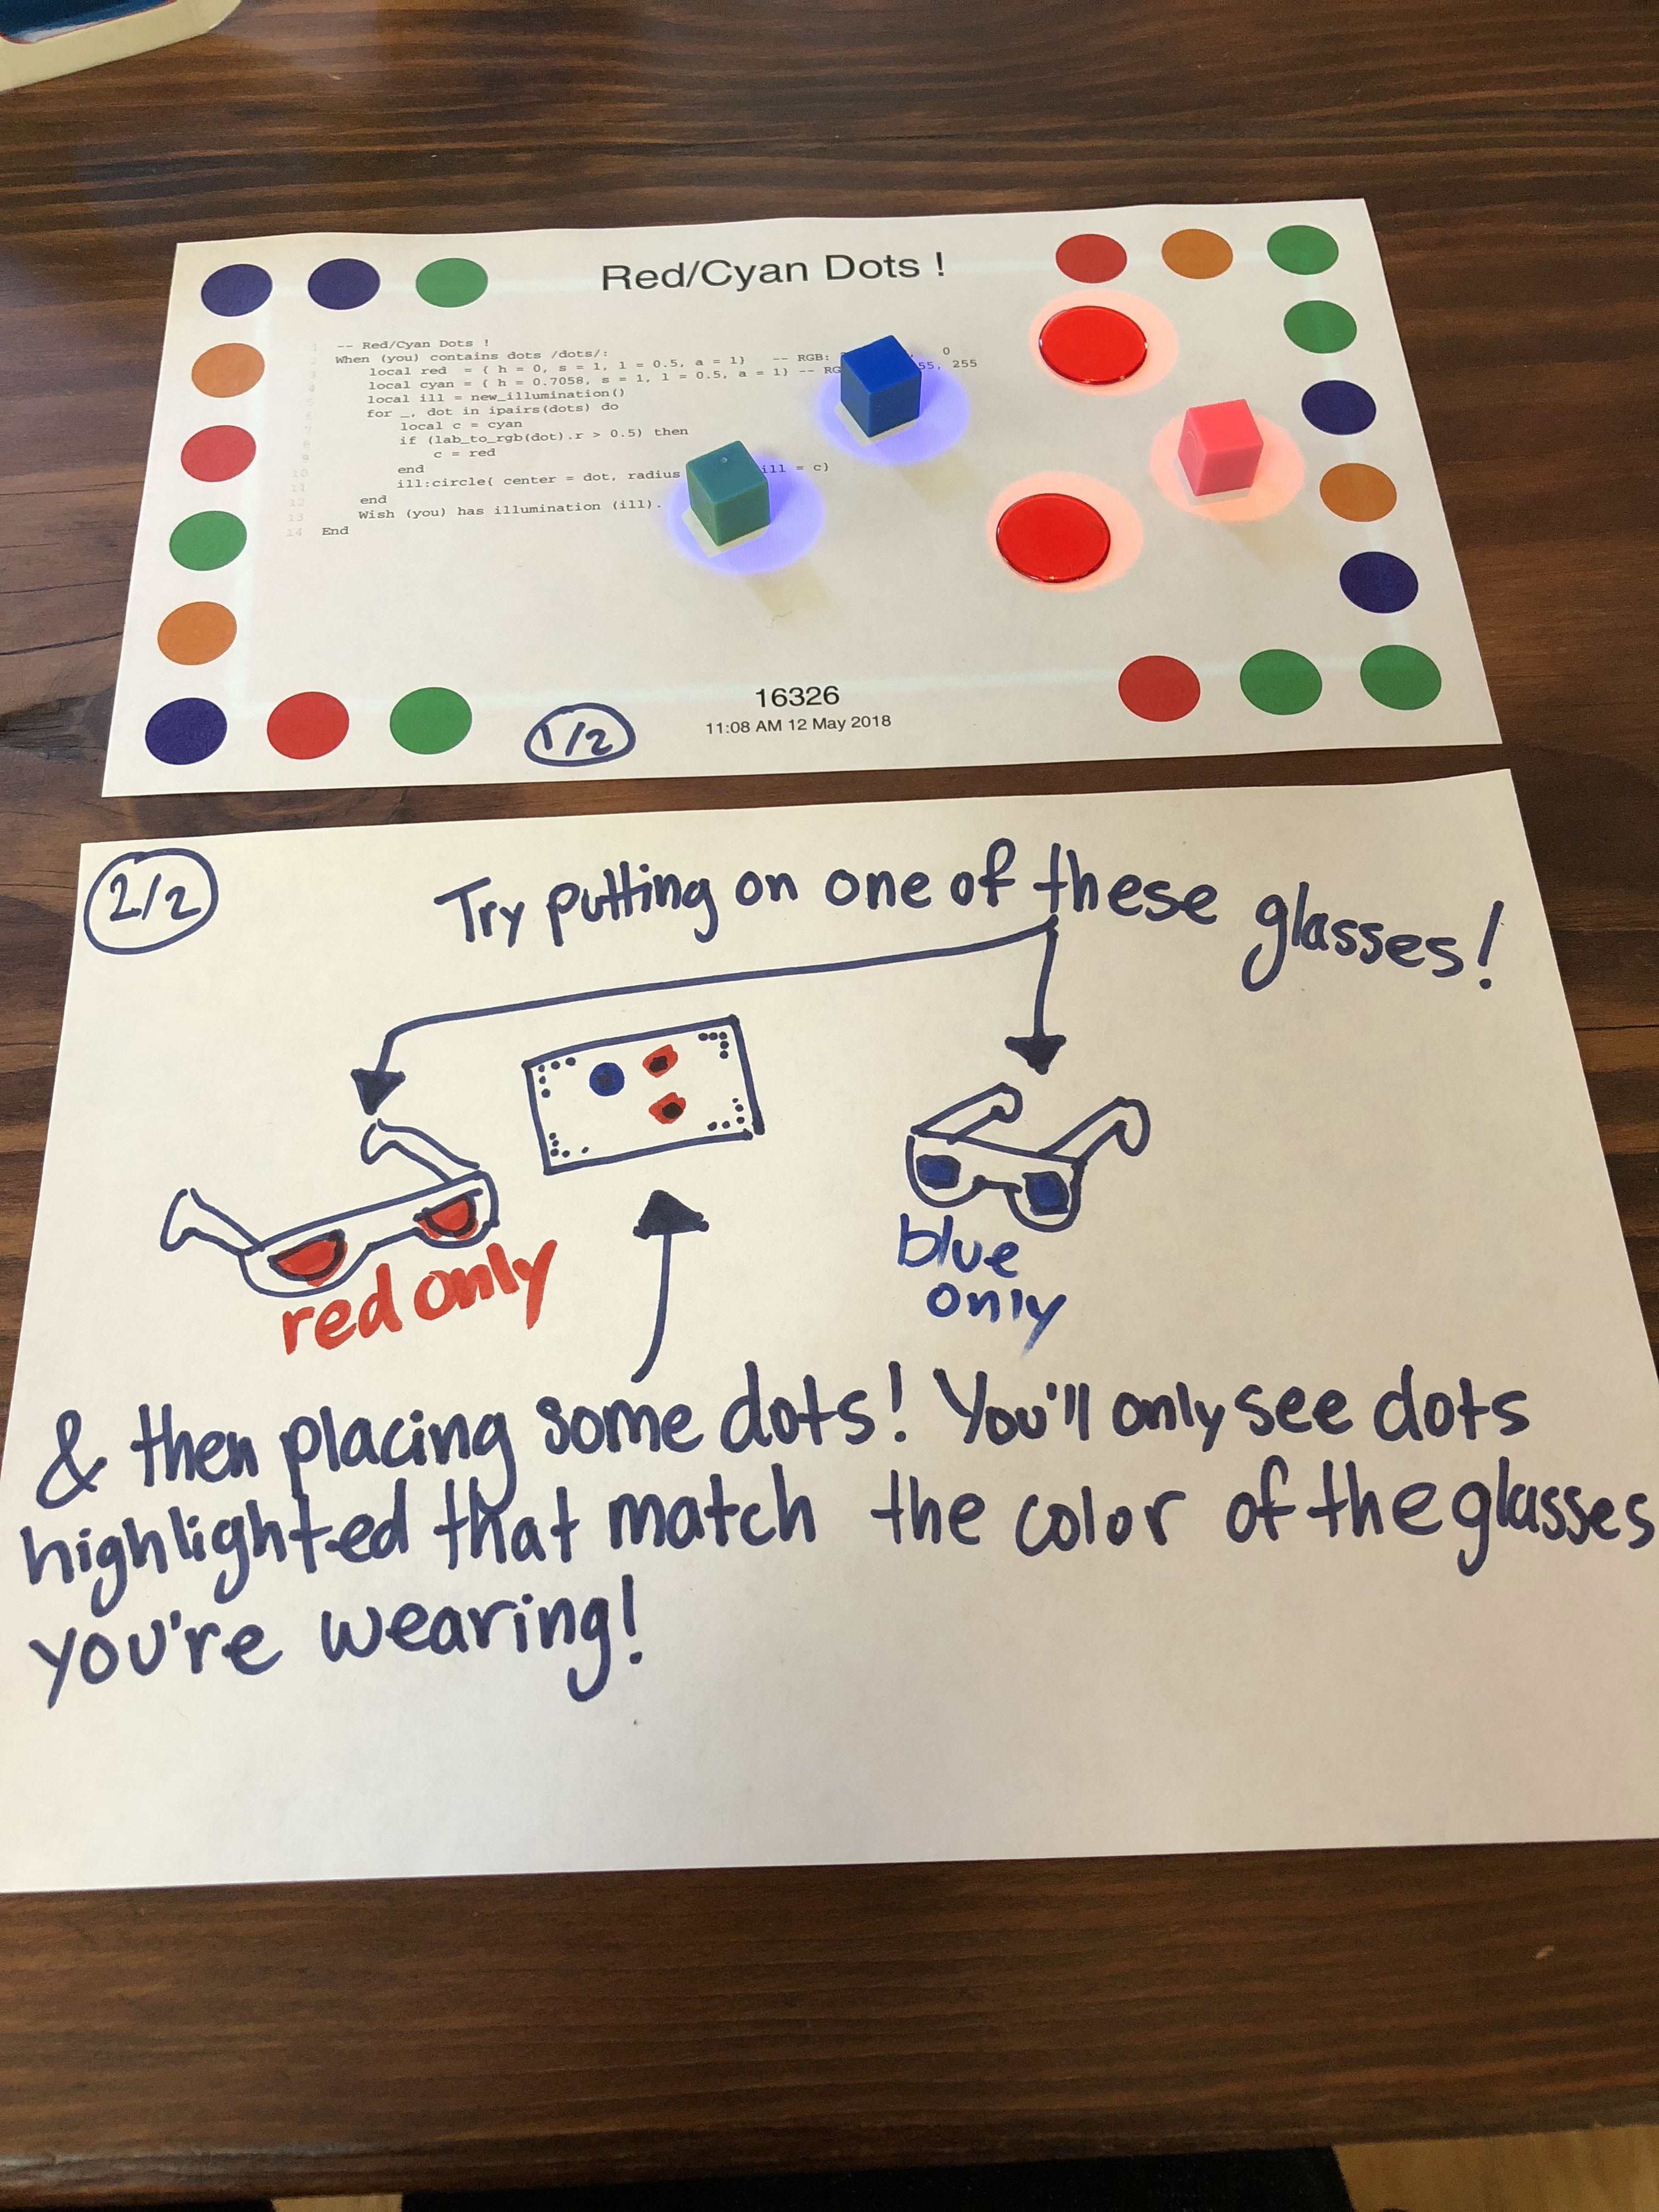 Red/Cyan Dots !
1 -- Red/Cyan Dots !
2 When (you) contains dots /dots/:
3 local red = { h = 0, s = 1, l = 0.5, a = 1} -- RGB: 0
4 local cyan = { h = 0.7058, s = 1, l = 0.5, a = 1} -- 255
5 local ill = new_illumination()
6 for _, dot in ipairs(dots) do
7 local c = cyan
8 if (lab_to_rgb(dot).r > 0.5) then
9 c = red
10 end
11 ill:circle( center = dot, radius ill = c)
12 end
13 Wish (you) has illumination (ill).
14 End
16326
11:08 AM 12 May 2018
1/2
2/2
Try putting on one of these glasses!
red only
blue
only
& then placing some dots! You'll only see dots
highlighted that match the color of the glasses
you're wearing!